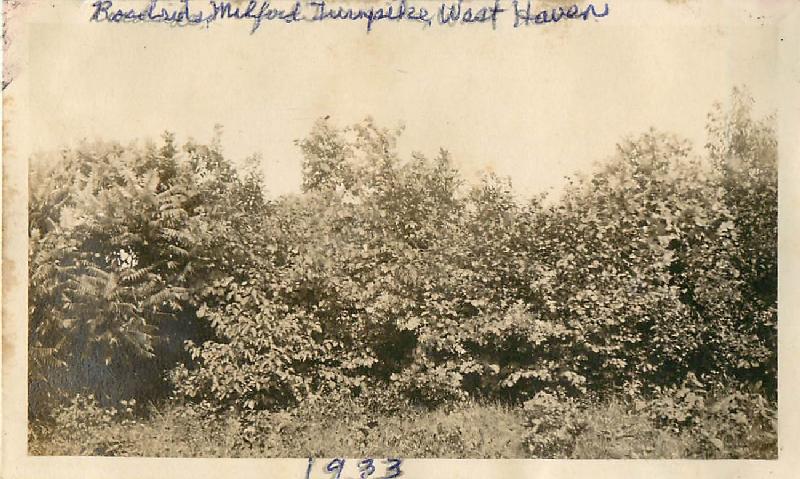 Roadside, Milford Turnpike, West Haven
1933